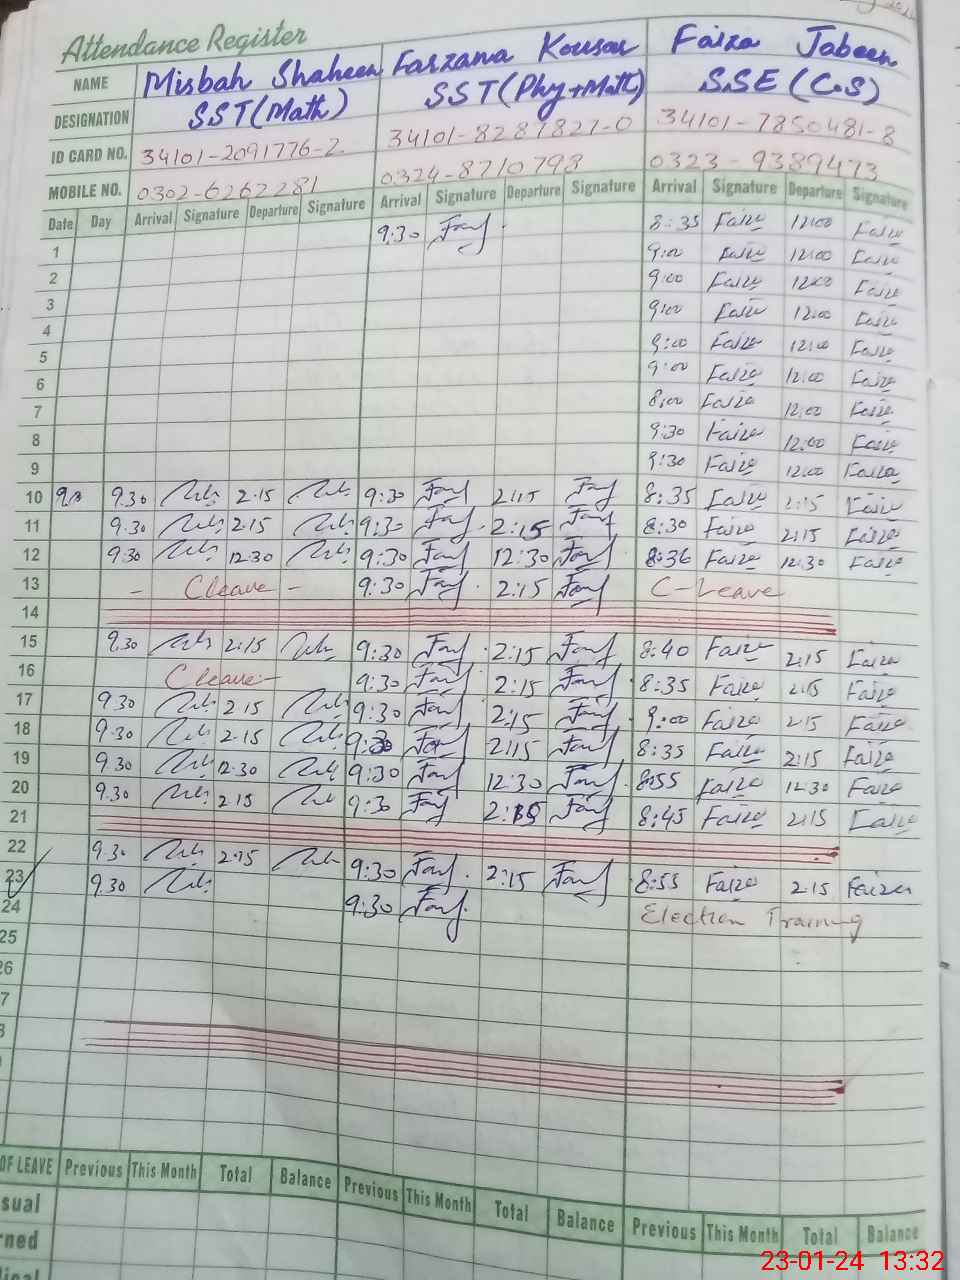 Attendance Register
NAME Misbah Shaheen Farzana Kousar Faiza Jabeen
DESIGNATION SST(Math) SST(Phy+Math) SSE (C.S)
ID CARD NO. 34101-2091776-2 34101-8287827-0 34101-7850481-8
MOBILE NO. 0302-6262281 0324-8710798 0323-9389473
Date Day Arrival Signature Departure Signature Arrival Signature Departure Signature Arrival Signature Departure Signature
1 9:30 8:35 Faize 12:00 Faize
2 9:00 Faize 12:00 Faize
3 9:00 Faize 12:00 Faize
4 9:00 Faize 12:00 Faize
5 9:00 Faize 12:00 Faize
6 9:00 Faize 12:00 Faize
7 8:00 Faize 12:00 Faize
8 9:30 Faize 12:00 Faize
9 9:30 Faize 12:00 Faize
10 9.30 2.15 9:30 2:15 8:35 Faize 2:15 Faize
11 9.30 2.15 9:30 2:15 8:30 Faize 2:15 Faize
12 9.30 12.30 9:30 12:30 8:36 Faize 12:30 Faize
13 - Cleave - 9:30 2:15 C-Leave
14
15 9.30 2:15 9:30 2:15 8:40 Faize 2:15 Faize
16 Cleave- 9:30 2:15 8:35 Faize 2:15 Faize
17 9.30 2.15 9:30 2:15 9:00 Faize 2:15 Faize
18 9.30 2.15 9:30 2:15 8:35 Faize 2:15 Faize
19 9.30 12.30 9:30 12:30 8:55 Faize 12:30 Faize
20 9.30 2.15 9:30 2:15 8:45 Faize 2:15 Faize
21
22 9.30 2.15 9:30 2:15 8:55 Faize 2:15 Faize
23 9.30 9:30 Election Training
24
25
26
7
OF LEAVE Previous This Month Total Balance Previous This Month Total Balance Previous This Month Total Balance
sual
rned
dical
23-01-24 13:32